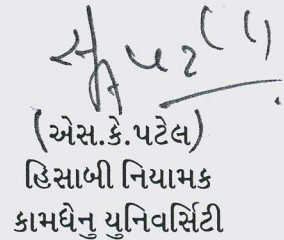 (એસ.કે.પટેલ)
હિસાબી નિયામક
કામધેનુ યુનિવર્સિટી